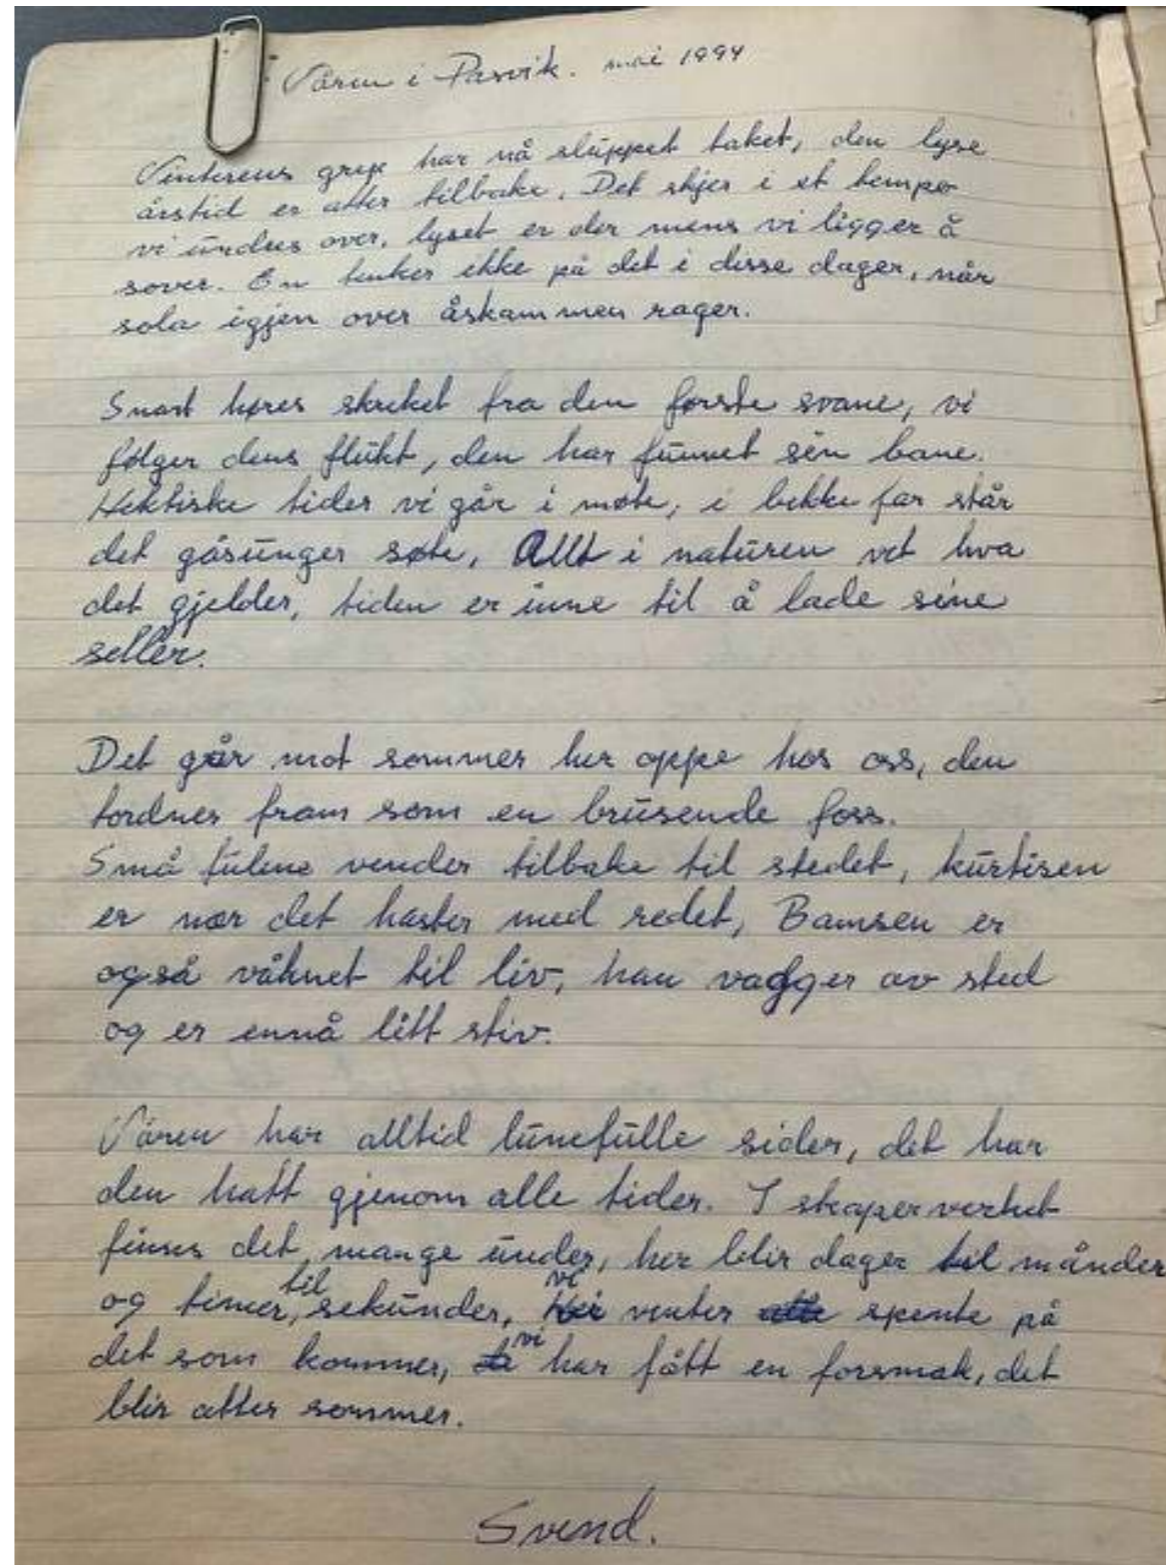 Våren i Pasvik. mai 1994
Vinterens grep har nå sluppet taket, den lyse
årstid er atter tilbake. Det skjer i et tempo
vi undres over, lyset er der mens vi ligger å
sover. En tenker ikke på det i disse dager, når
sola igjen over åskammen rager.
Snart høres skriket fra den første svane, vi
følger dens flukt, den har funnet sin bane.
Hektiske tider vi går i møte, i bekke far står
det gåsunger søte, Allt i naturen vet hva
det gjelder, tiden er inne til å lade sine
seller.
Det går mot sommer her oppe hos oss, den
tordner fram som en brusende foss.
Små fulene vender tilbake til stedet, kurtisen
er nær det haster med redet, Bamsen er
også våknet til liv, han vagger av sted
og er ennå litt stiv.
Våren har alltid lunefulle sider, det har
den hatt gjenom alle tider. I skaperverket
finns det mange under, her blir dager til månder
og timer til sekunder, vi venter spente på
det som kommer, vi har fått en forsmak, det
blir atter sommer.
Svend.